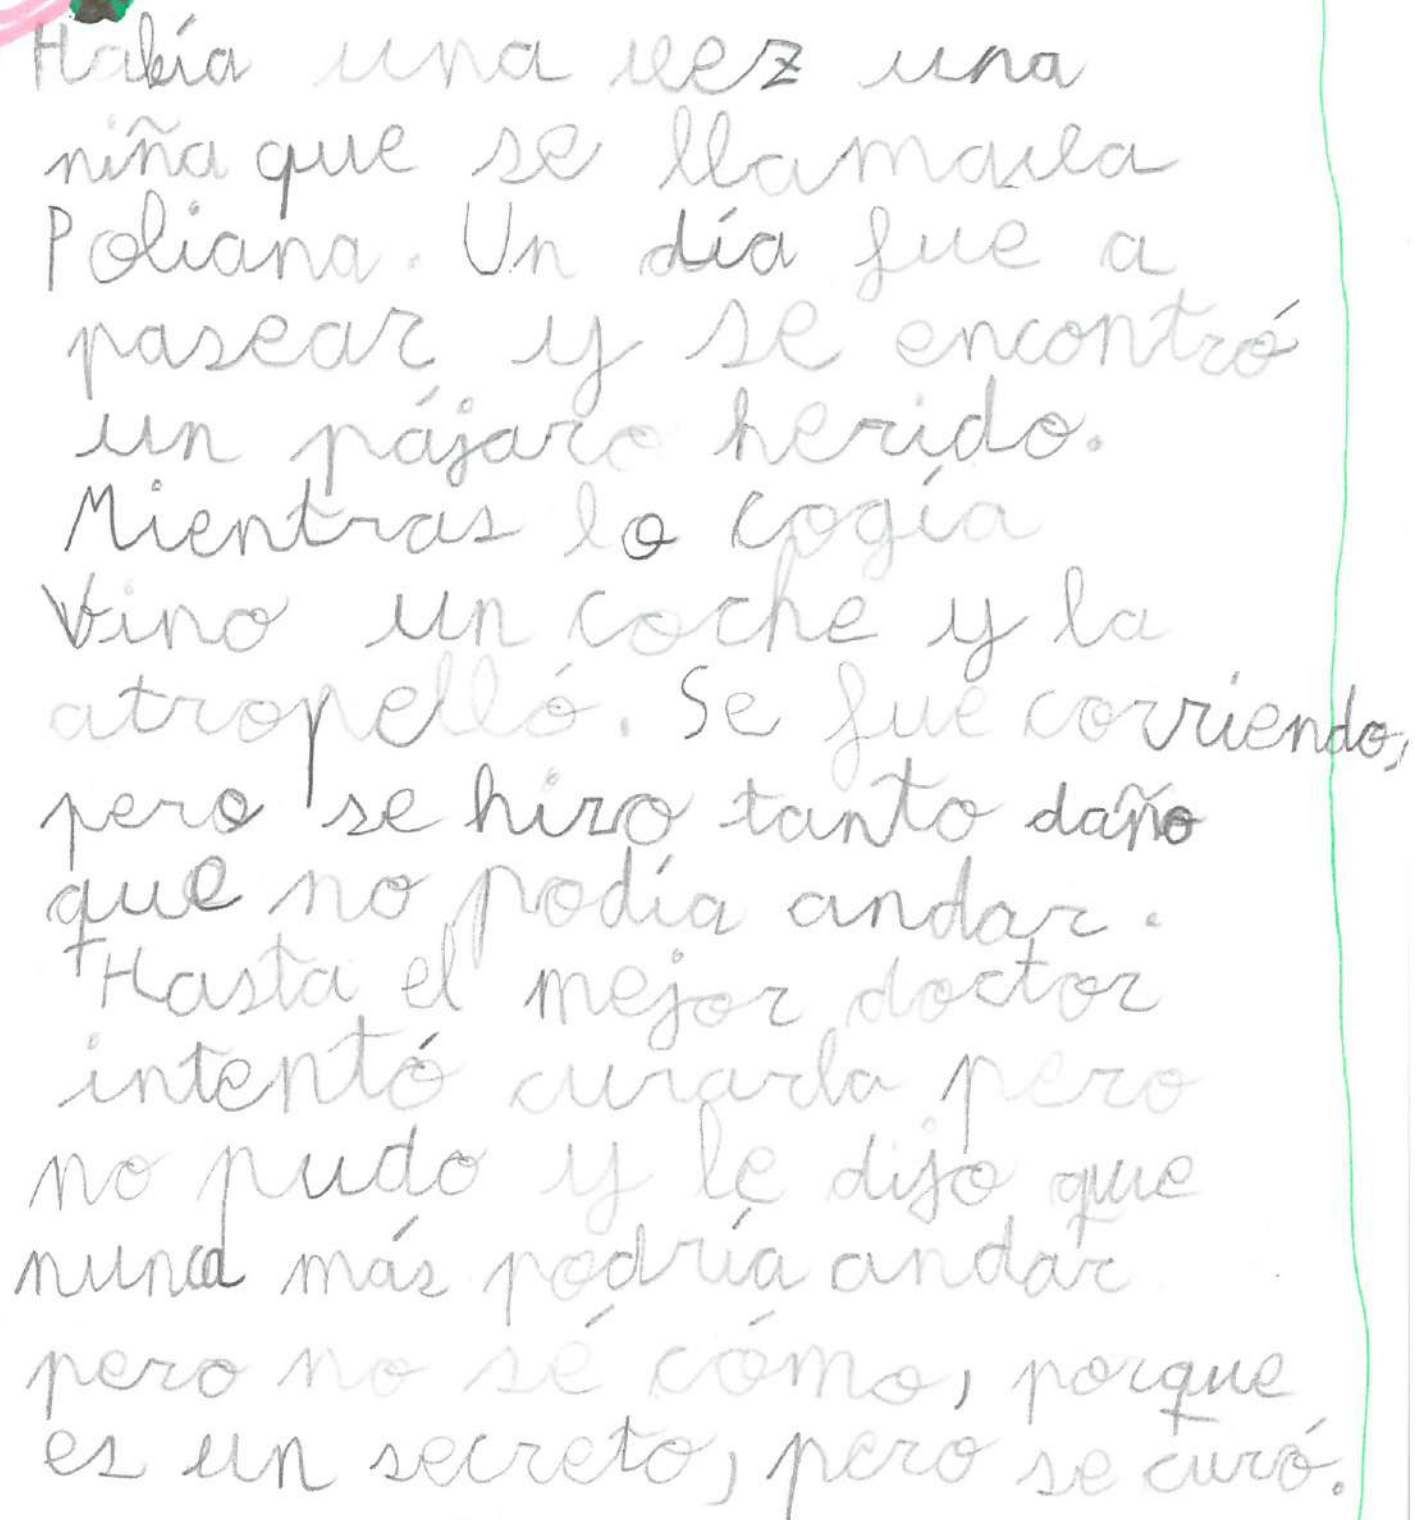 Había una vez una
niña que se llamava
Poliana. Un día fue a
pasear y se encontró
un pájaro herido.
Mientras lo cogía
Vino un coche y la
atropelló. Se fue corriendo,
pero se hizo tanto daño
que no podía andar.
Hasta el mejor doctor
intentó curarla pero
no pudo y le dijo que
nunca más podría andar
pero no sé cómo, porque
es un secreto, pero se curó.